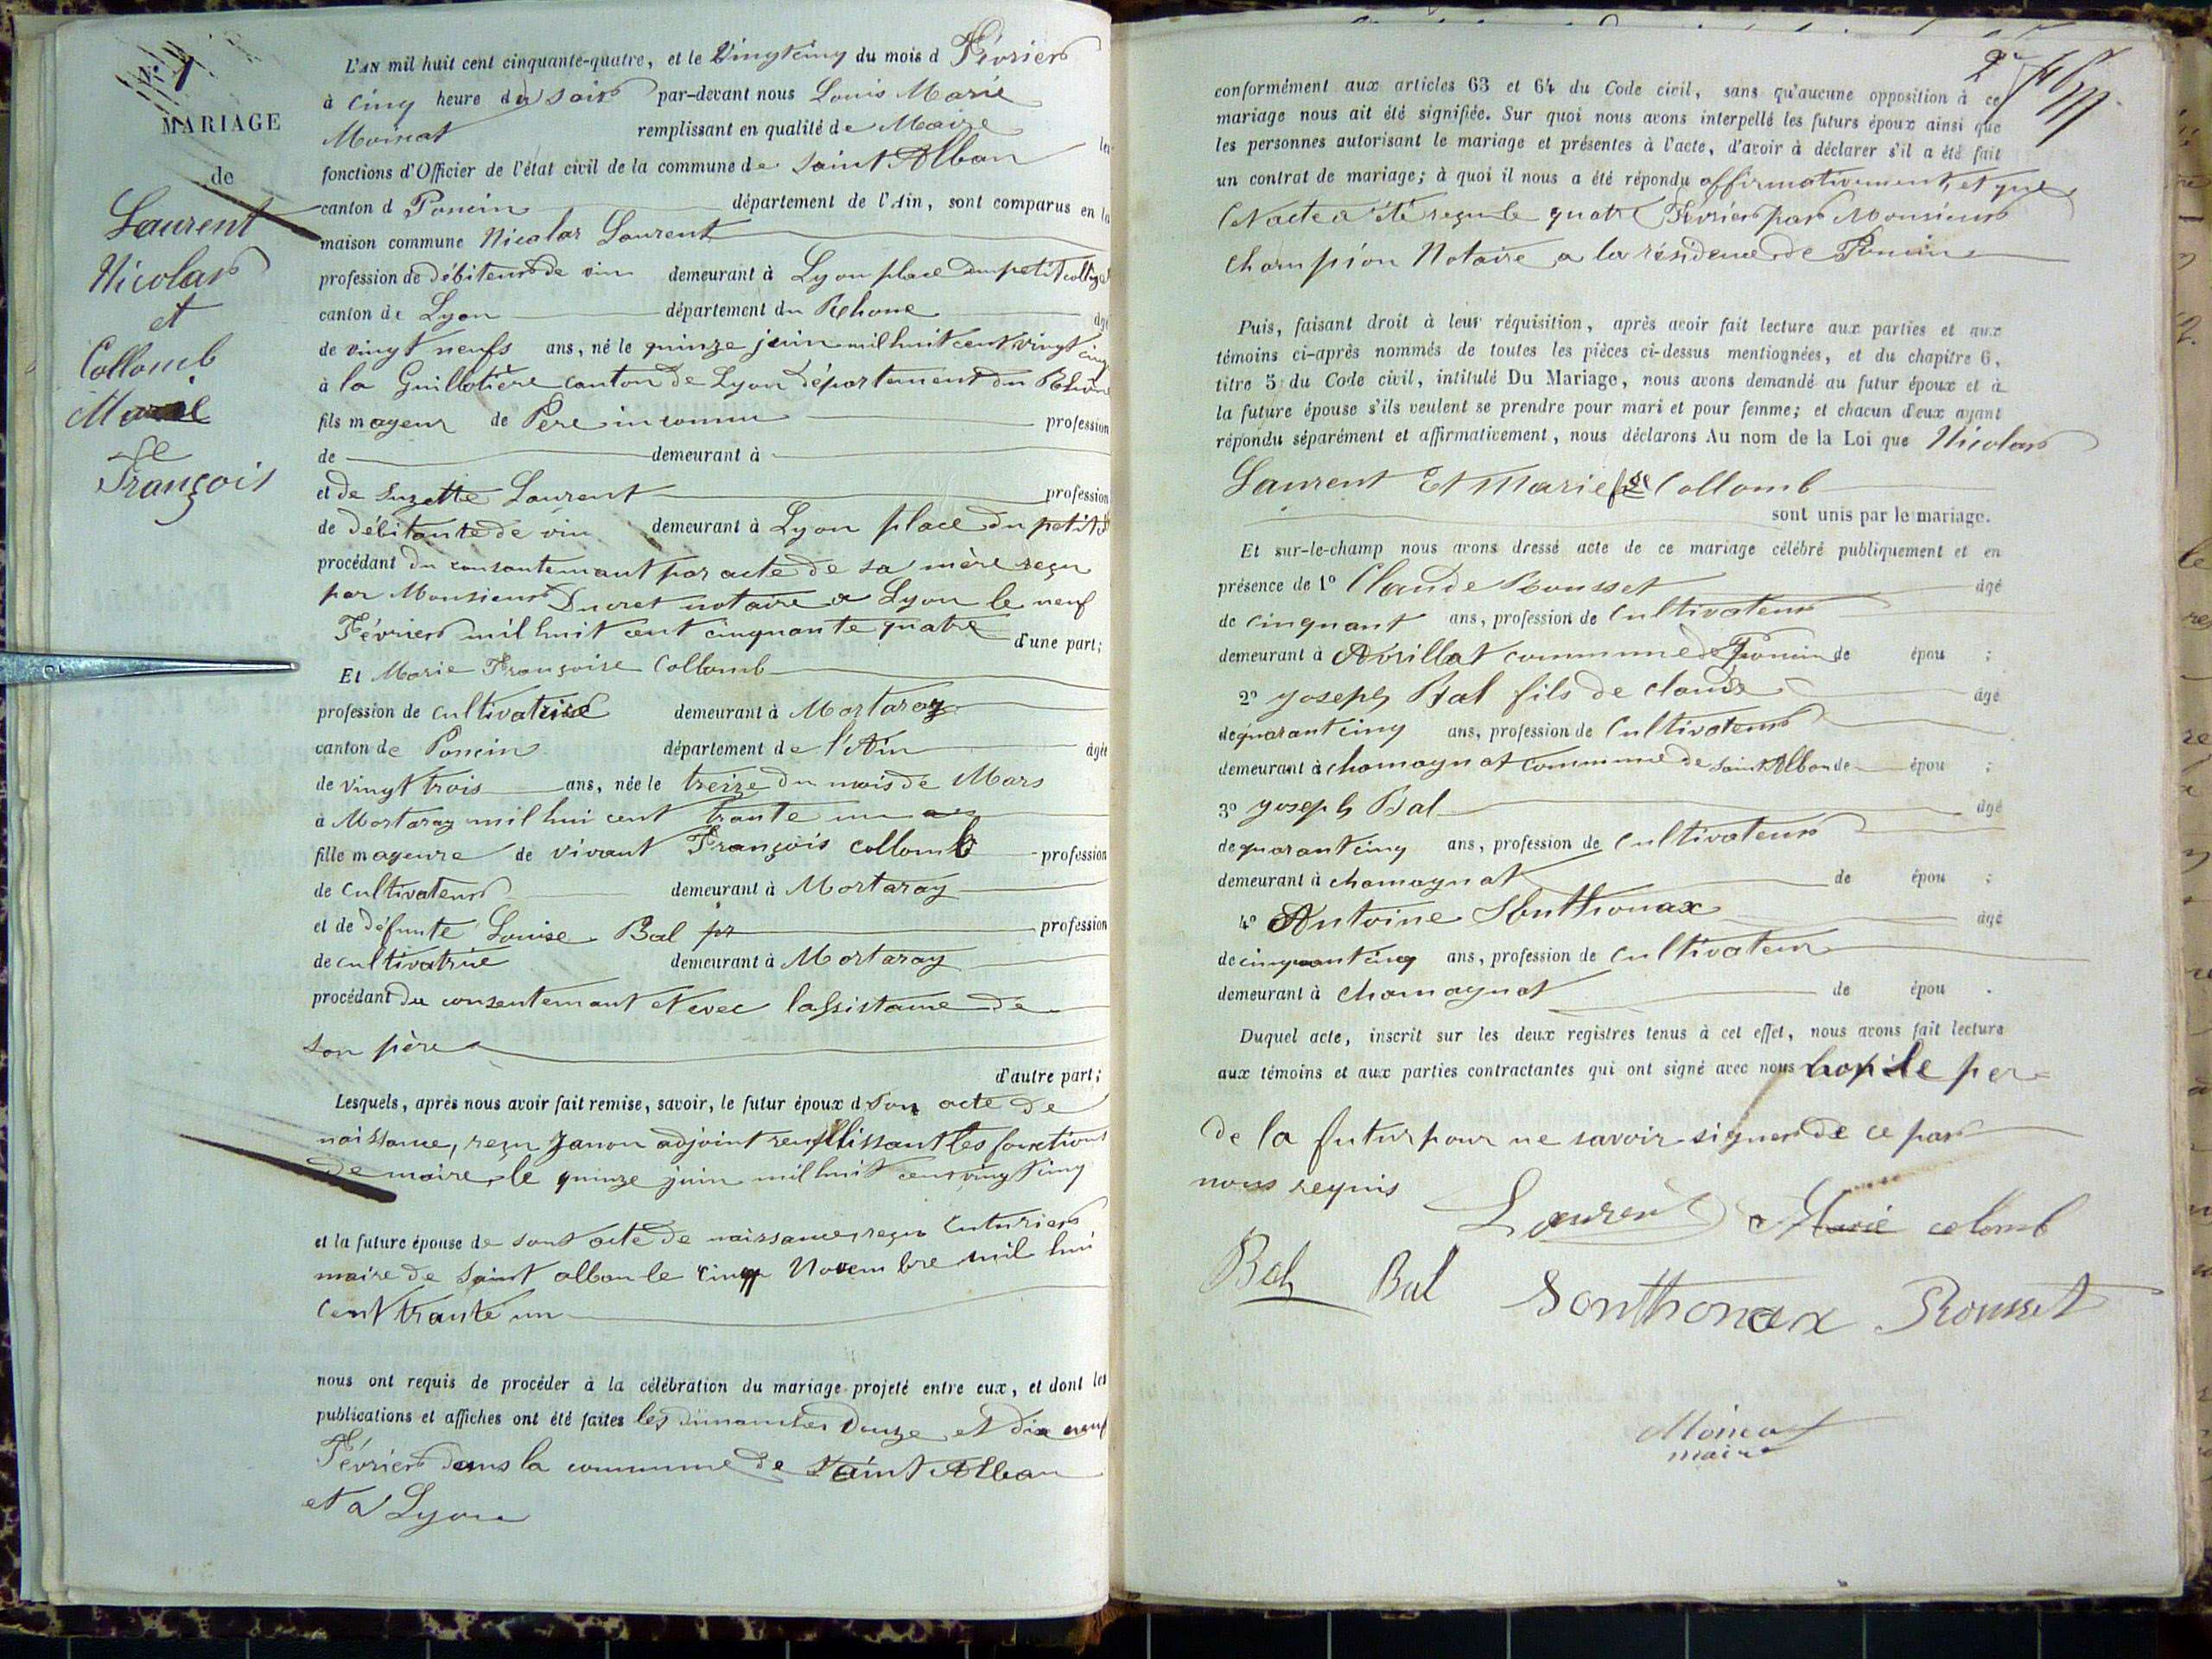 N° 1
MARIAGE
de
Laurent
Nicolas
et
Collomb
Marie
François
L'AN mil huit cent cinquante-quatre, et le Vingt cinq du mois d Février
à cinq heure du soir par-devant nous Louis Marie
Moinat remplissant en qualité de Maire les
fonctions d'Officier de l'état civil de la commune de Saint Alban
canton d Poncin département de l'Ain, sont comparus en la
maison commune Nicolas Laurent
profession de débiteur de vin demeurant à Lyon place du petit collège
canton de Lyon département du Rhone âgé
de vingt neufs ans, né le quinze juin mil huit cent vingt cinq
à la Guillotière canton de Lyon département du Rhône
fils mageur de Père inconnu profession
de demeurant à
et de Suzette Laurent profession
de débitante de vin demeurant à Lyon place du petit
procédant du consantemant par acte de sa mère reçu
par Monsieur Ducret notaire a Lyon le neuf
Février mil huit cent cinquante quatre d'une part;
Et Marie Françoise Collomb
profession de cultivatrice demeurant à Mortaray
canton de Poncin département de l'Ain âgée
de vingt trois ans, née le treize du mois de Mars
à Mortaray mil hui cent trante un
fille mageure de vivant François Collomb profession
de cultivateur demeurant à Mortaray
et de défunte Louise Bal profession
de cultivatrice demeurant à Mortaray
procédant du consentemant et avec lassistance de
son père
d'autre part;
Lesquels, après nous avoir fait remise, savoir, le futur époux d son acte de
naissance, reçu Janon adjoint remplissant les fonctions
de maire, le quinze juin mil huit cent vingt cinq
et la future épouse de sont acte de naissance, reçu Cuturier
maire de Saint alban le cinq Novembre mil hui
cent trante un
nous ont requis de procéder à la célébration du mariage projeté entre eux, et dont les
publications et affiches ont été faites les dimanches douze et dix neuf
Février dans la commune de Saint Alban
et a Lyon
conformément aux articles 63 et 64 du Code civil, sans qu'aucune opposition à ce
mariage nous ait été signifiée. Sur quoi nous avons interpellé les futurs époux ainsi que
les personnes autorisant le mariage et présentes à l'acte, d'avoir à déclarer s'il a été fait
un contrat de mariage; à quoi il nous a été répondu affirmativement, et que
cet acte a été reçu le quatre Février par Monsieur
Champion Notaire a la résidence de Poncin
Puis, faisant droit à leur réquisition, après avoir fait lecture aux parties et aux
témoins ci-après nommés de toutes les pièces ci-dessus mentionnées, et du chapitre 6,
titre 5 du Code civil, intitulé Du Mariage, nous avons demandé au futur époux et à
la future épouse s'ils veulent se prendre pour mari et pour femme; et chacun d'eux ayant
répondu séparément et affirmativement, nous déclarons Au nom de la Loi que Nicolas
Laurent Et Marie fse Collomb
sont unis par le mariage.
Et sur-le-champ nous avons dressé acte de ce mariage célébré publiquement et en
présence de 1° Claude Rousset âgé
de cinquant ans, profession de Cultivateur
demeurant à Avrillat commune de Poncin de épou ;
2° Joseph Bal fils de claude âgé
de quarant cinq ans, profession de Cultivateur
demeurant à chamagnat commune de Saint Alban de épou ;
3° Joseph Bal âgé
de quarant cinq ans, profession de Cultivateur
demeurant à chamagnat de épou ;
4° Antoine Sonthonax âgé
de cinquant cinq ans, profession de cultivateur
demeurant à chamagnat de épou .
Duquel acte, inscrit sur les deux registres tenus à cet effet, nous avons fait lecture
aux témoins et aux parties contractantes qui ont signé avec nous hors le per
de la futur pour ne savoir signer de ce par
nous requis
Laurent Marie colomb
Bal Bal Sonthonax Rousset
Moinat
maire